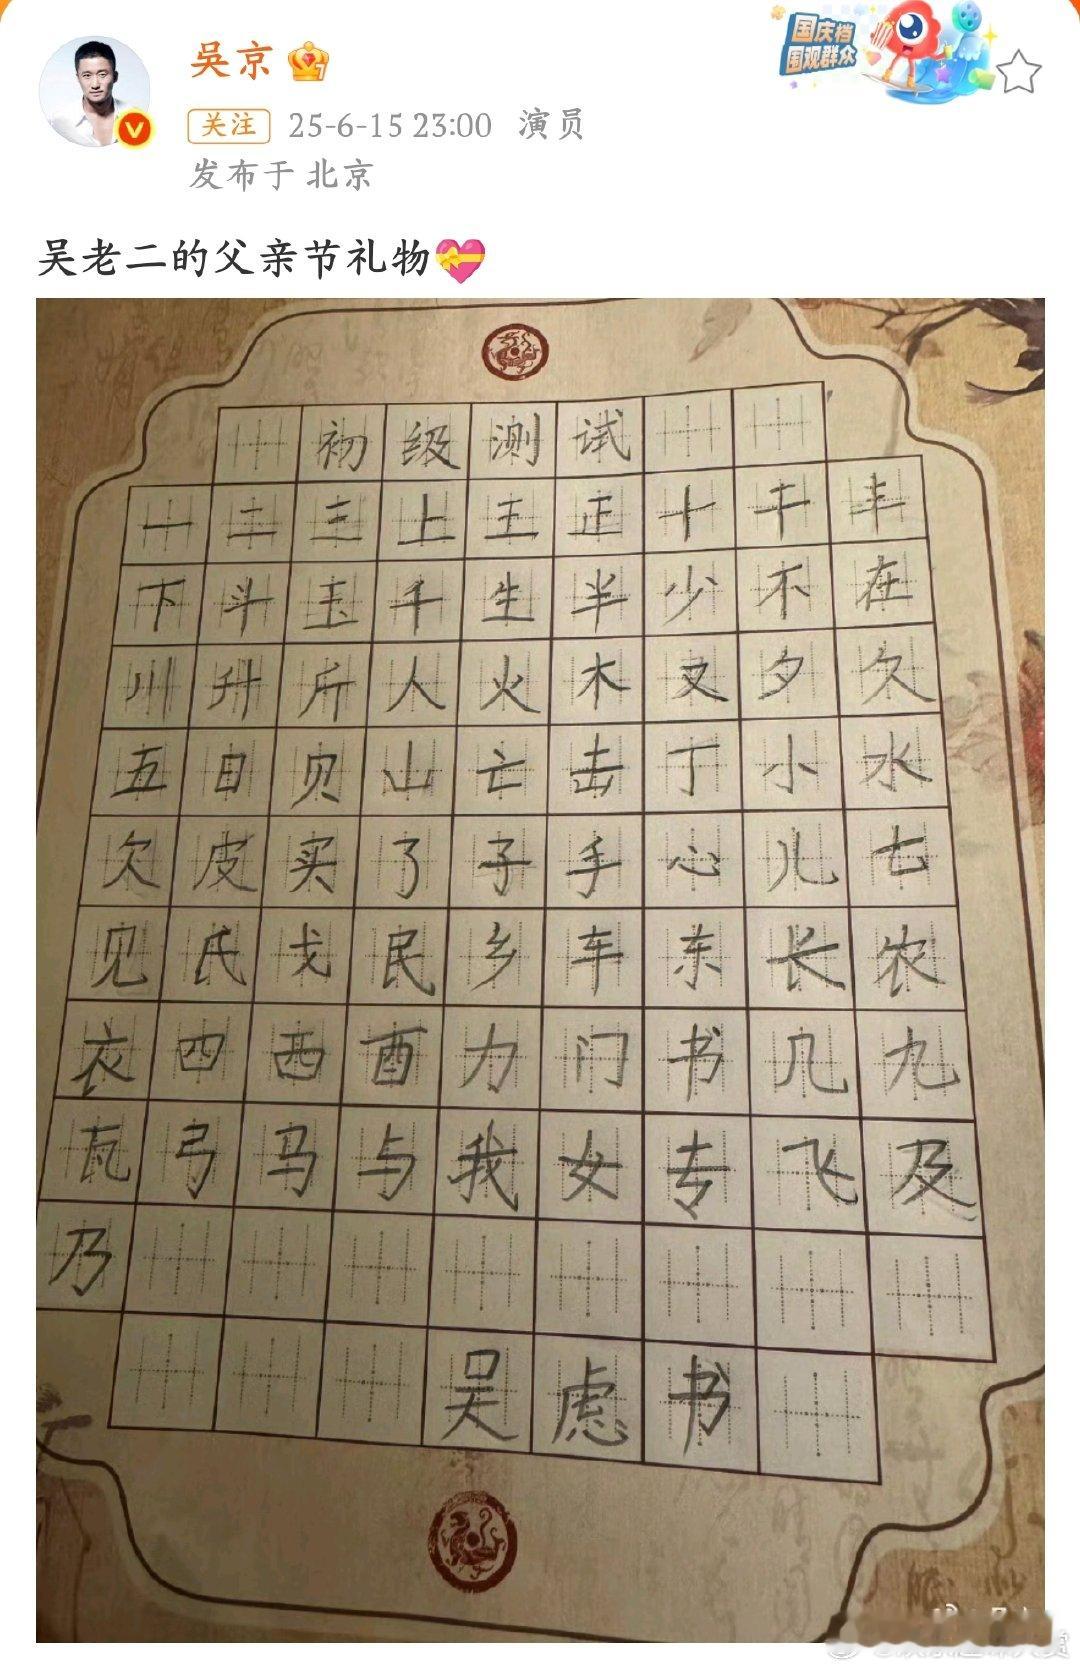 吳京
国庆档
围观群众
关注 25-6-15 23:00 演员
发布于 北京
吴老二的父亲节礼物💝
初级测试
一二三上王正十干丰
下斗玉千生半少不在
川升斤人火木又夕久
五自贝山亡击丁小水
欠皮买了子手心儿七
见氏戈民乡车东长农
衣四西酉力门书几九
瓦弓马与我女专飞及
乃
吴虑书